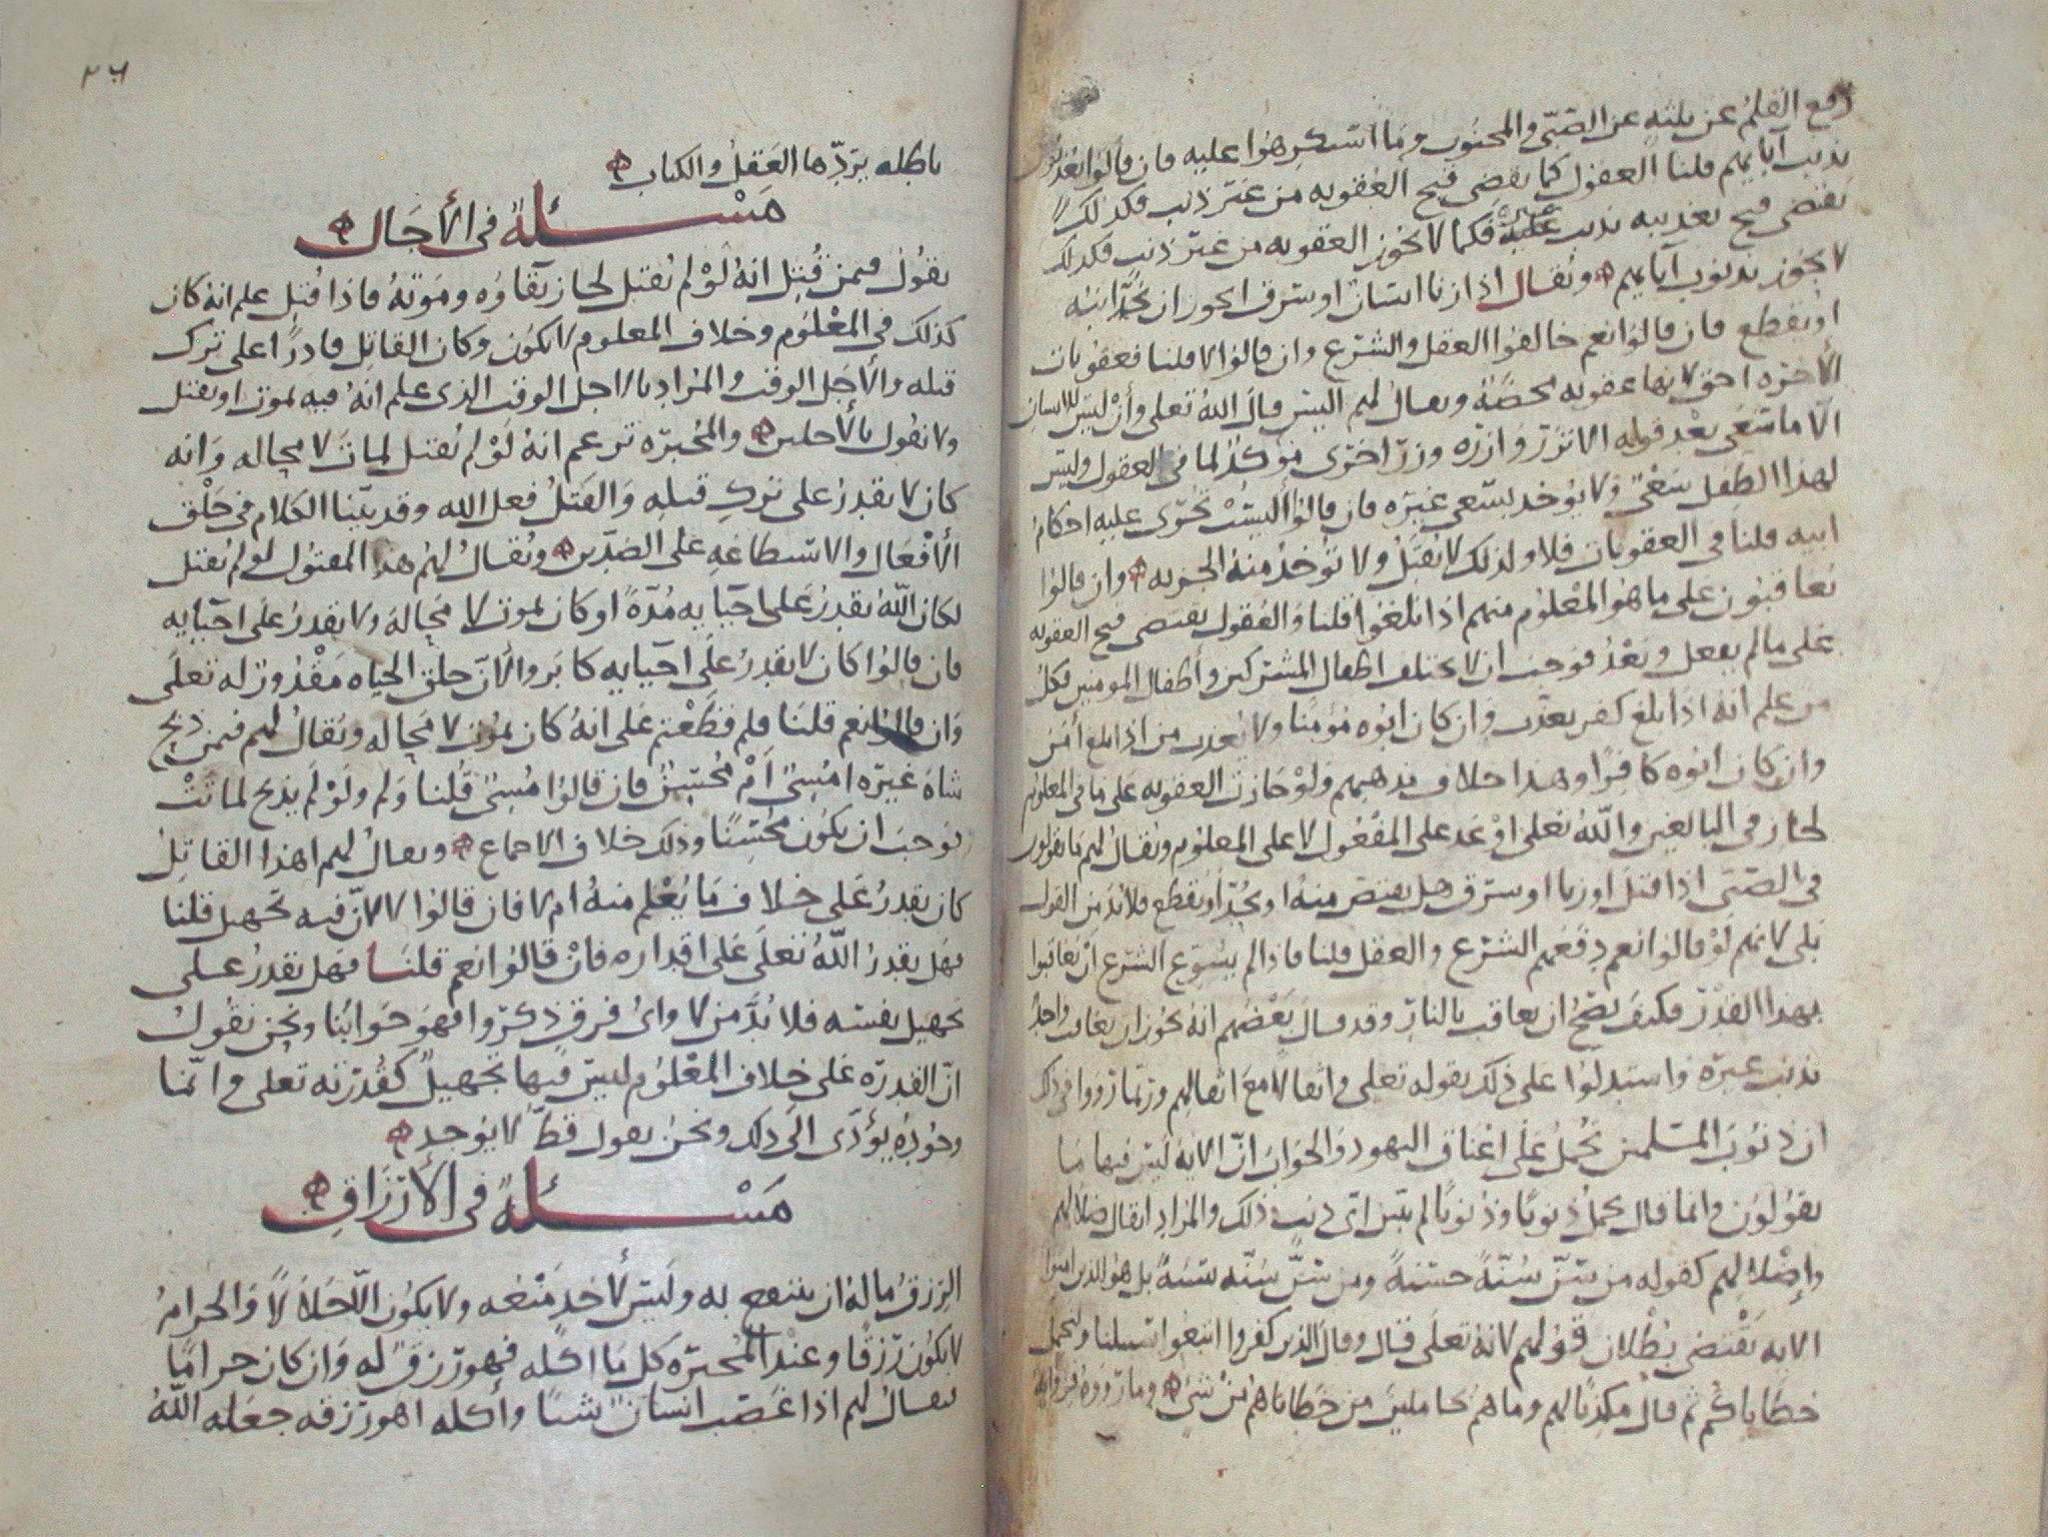 رفع القلم عن ثلثه عن الصبى والمجنون وما استكرهوا عليه فان قالوا يعذبون
بذنب آبايهم قلنا العقول كما يقضى قبح العقوبه من غير ذنب فكذلك
يقتضى قبح تعذيبه بذنب غيره فكما لا يجوز العقوبه من غير ذنب فكذلك
لا يجوز بذنوب آبايهم ويقال اذا زنا انسان او سرق ايجوز ان يحد ابنه
او يقطع فان قالوا نعم خالفوا العقل والشرع وان قالوا لا قلنا فعقوبات
الاخره احق لانها عقوبه محضة ويقال لهم اليس قال الله تعلى وأن ليس للانسان
الا ما سعى بعد قوله الا تزر وازره وزر اخرى مؤكد لما فى العقول وليس
لهذا الطفل سعى ولا يؤخذ بسعى غيره فان قالوا أليست تجرى عليه احكام
ابيه قلنا فى العقوبات فلا ولذلك لا يقتل ولا تؤخذ منه الجزيه وان قالوا
يعاقبون على ما هو المعلوم منهم اذا بلغوا قلنا والعقول يقتضى قبح العقوبه
على ما لم يفعل وبعد فوجب ان لا يختلف اطفال المشركين وأطفال المومنين فكل
من علم انه اذا بلغ كفر يعذب وان كان ابوه مؤمنا ولا يعذب من اذا بلغ أمن
وان كان ابوه كافرا وهذا خلاف مذهبهم ولو جازت العقوبه على ما فى المعلوم
لجاز فى البالغين والله تعلى اوعد على المفعول لا على المعلوم ويقال لهم ما يقولون
فى الصبى اذا قتل او زنا او سرق هل يقتص منه او يحد او يقطع فلا بد من القول
بلى لانهم لو قالوا نعم دفعهم الشرع والعقل قلنا فاذا لم يسوغ الشرع ان يعاقبوا
بهذا القدر فكيف يصح ان يعاقب بالنار وقد قال بعضهم انه يجوز ان يعاقب واحد
بذنب غيره واستدلوا على ذلك بقوله تعلى واثقالا مع اثقالهم وربما رووا فى ذلك
ان ذنوب المسلمين تحمل على اعناق اليهود والجواب ان الايه ليس فيها ما
يقولون وانما قال يحمل ذنوبا وذنوبا لم يبين اى ذنب ذلك والمراد اثقال ضلالهم
واضلالهم كقوله من سن سنة حسنة ومن سن سنه سيئة بل هو الذى
الايه يقتضى بطلان قولهم لانه تعلى قال وقال الذين كفروا اتبعوا سبيلنا ولنحمل
خطاياكم ثم قال مكذبا لهم وما هم بحاملين من خطاياهم من شىء وما رووه
٢٦
باطله يردها العقل والكتاب
مسئلة فى الأجال
يقول فيمن قتل انه لو لم يقتل لجاز بقاوه وموته فاذا قتل علم انه كان
كذلك فى المعلوم وخلاف المعلوم لا يكون وكان القاتل قادرا على ترك
قتله والأجل الوقت والمراد بالاجل الوقت الذى علم انه فيه يموت او يقتل
ولا نقول بالأجلين والمجبره تزعم انه لو لم يقتل لمات لا محاله وانه
كان لا يقدر على ترك قتله والقتل فعل الله وقد بينا الكلام فى خلق
الأفعال والاستطاعه على الضدين ويقال لهم هذا المقتول لو لم يقتل
لكان الله يقدر على احيايه مدة او كان يموت لا محالة ولا يقدر على احيايه
فان قالوا كان لا يقدر على احيايه كابروا لان خلق الحياه مقدور له تعلى
وان قالوا نعم قلنا فلم قطعتم على انه كان يموت لا محاله ويقال لهم فيمن ذبح
شاه غيره امسىء ام محسن فان قالوا مسىء قلنا ولم ولو لم يذبح لماتت
فوجب ان يكون محسنا وذلك خلاف الاجماع ويقال لهم اهذا القاتل
كان يقدر على خلاف ما يعلم منه ام لا فان قالوا لا لان فيه تجهيل قلنا
فهل يقدر الله تعلى على اقداره فان قالوا نعم قلنا فهل يقدر على
تجهيل نفسه فلا بد من لا واى فرق ذكروا فهو جوابنا ونحن نقول
ان القدره على خلاف المعلوم ليس فيها تجهيل كقدرته تعلى وانما
وجوده يؤدى الى ذلك ونحن نقول قط لا يوجد
مسئلة فى الأرزاق
الرزق ماله ان ينتفع به وليس لأحد منعه ولا يكون الا حلالا والحرام
لا يكون رزقا وعند المجبره كل ما اكله فهو رزق له وان كان حراما
يقال لهم اذا غصب انسان شيئا وأكله اهو رزقه جعله الله